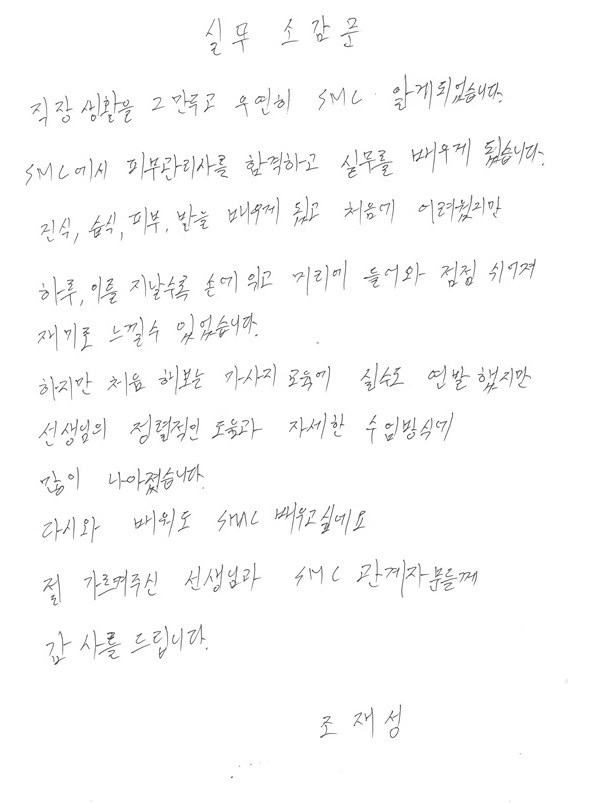 실무 소감문
직장생활을 그만두고 우연히 SMC 알게되었습니다.
SMC에서 피부관리사를 합격하고 실무를 배우게 됬습니다.
건식, 습식, 피부, 발을 배우게 됬고 처음에 어려웠지만
하루, 이틀 지날수록 손에 익고 머리에 들어와 점점 쉬어져
재미로 느낄수 있었습니다.
하지만 처음 해보는 마사지 교육에 실수도 연발했지만
선생님의 정렬적인 도움과 자세한 수업방식에
많이 나아졌습니다.
다시와 배워도 SMC 배우고싶네요
절 가르쳐주신 선생님과 SMC 관계자분들께
감사를 드립니다.
조재성